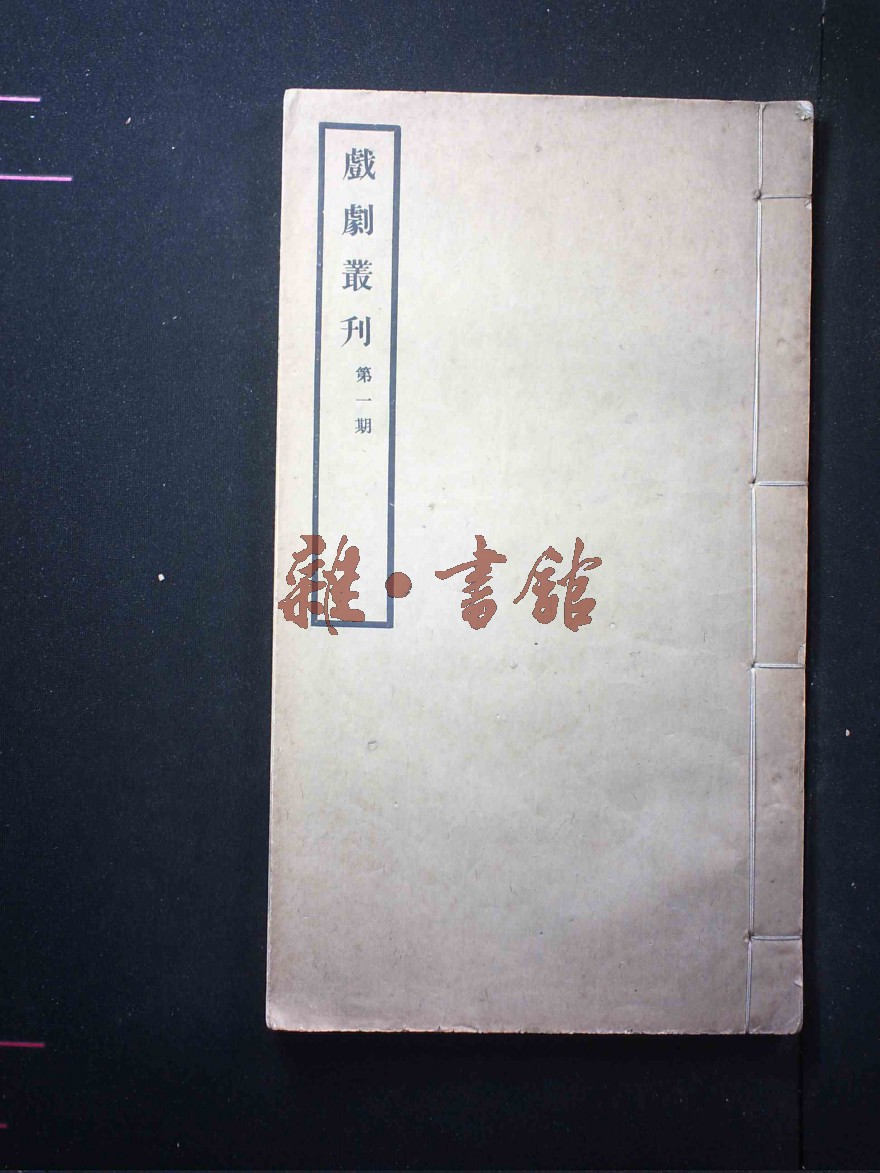 戲劇叢刊
第一期
雜·書館